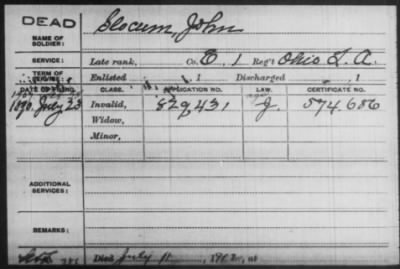 DEAD
Slocum, John
NAME OF
SOLDIER:
SERVICE: Late rank, Co. E, 1 Reg't Ohio L. A.
TERM OF
SERVICE: Enlisted , 1 Discharged , 1
DATE OF FILING. CLASS. APPLICATION NO. LAW. CERTIFICATE NO.
1890, July 23 Invalid, 829,431 J. 574,686
Widow,
Minor,
ADDITIONAL
SERVICES:
REMARKS:
Died July 11, 190 , at